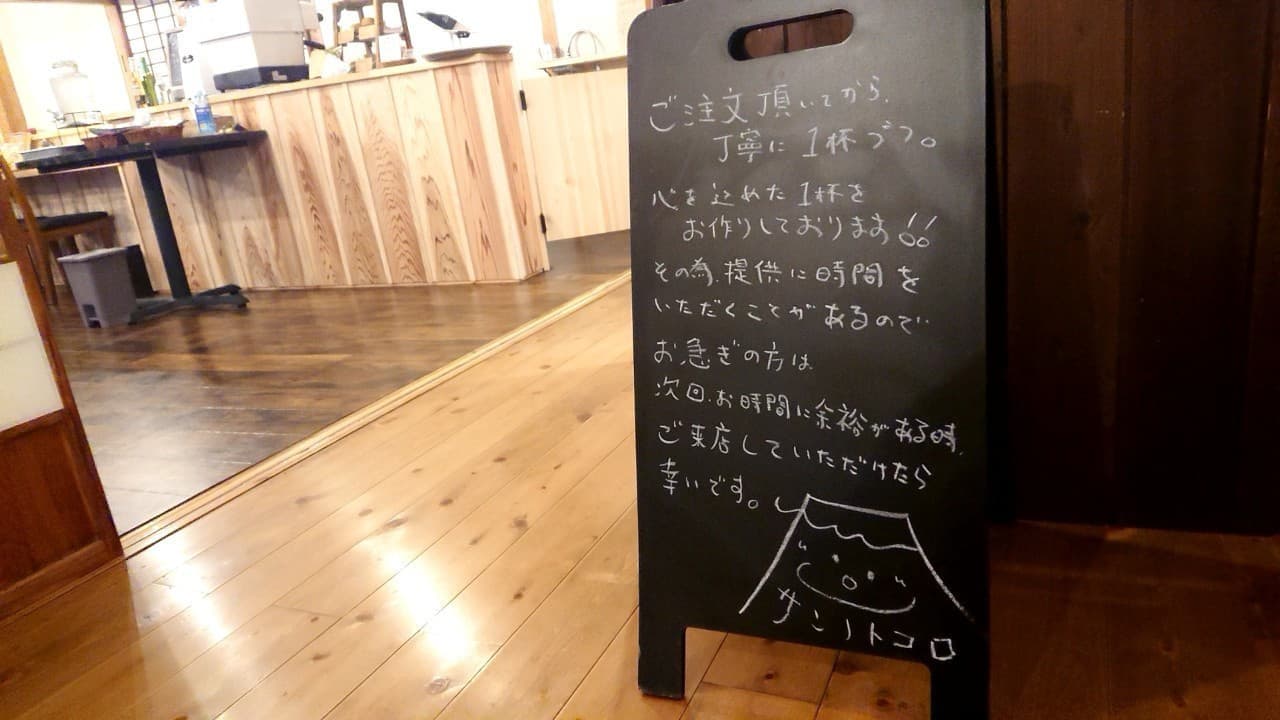 ご注文頂いてから、
丁寧に1杯づつ。
心を込めた1杯を
お作りしております!!
その為、提供に時間を
いただくことがあるので
お急ぎの方は
次回、お時間に余裕がある時、
ご来店していただけたら
幸いです。
サンノトコロ